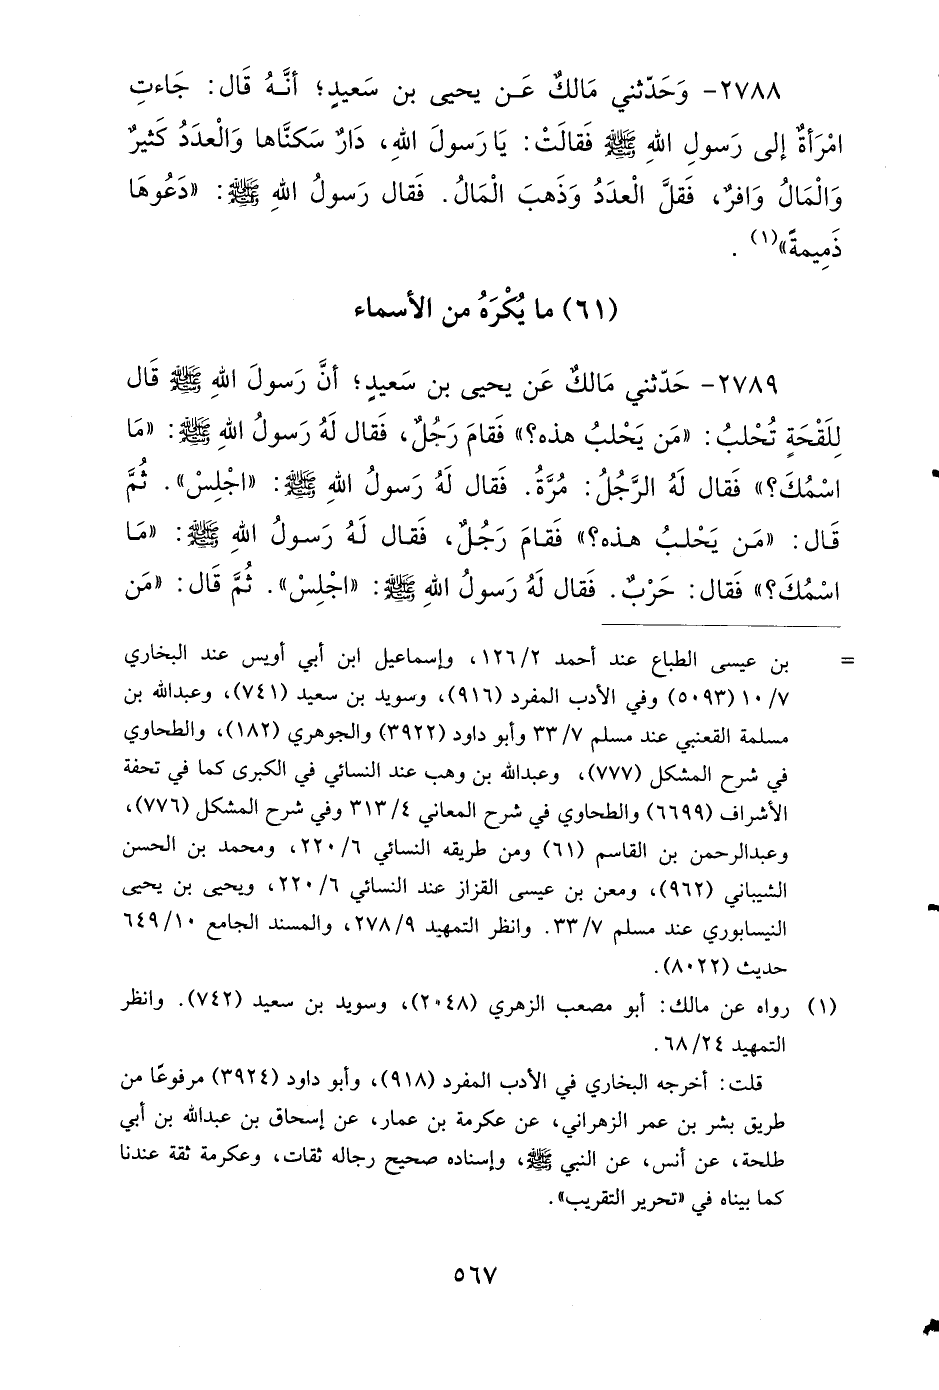 ٢٧٨٨- وَحَدّثني مَالكٌ عَـن يحيى بن سَعيدٍ؛ أنَّـهُ قَال: جَاءتِ
امْرَأةٌ إلى رَسولِ اللهِ ﷺ فَقالَتْ: يَا رَسولَ اللهِ، دَارٌ سَكنَّاها وَالْعدَدُ كَثيرٌ
وَالْمَالُ وَافرٌ، فَقلَّ الْعدَدُ وَذَهبَ الْمَالُ. فَقال رَسولُ اللهِ ﷺ: «دَعُوهَا
ذَمِيمةً»(١) .
(٦١) ما يُكْرَهُ من الأسماء
٢٧٨٩- حَدّثني مَالكٌ عَن يحيى بن سَعيدٍ؛ أنَّ رَسولَ اللهِ ﷺ قَال
لِلَقْحَةٍ تُحْلبُ: «مَن يَحْلبُ هذه؟» فَقامَ رَجُلٌ، فَقال لَهُ رَسولُ اللهِ ﷺ: «مَا
اسْمُكَ؟» فَقال لَهُ الرَّجُلُ: مُرَّةُ. فَقال لَهُ رَسولُ اللهِ ﷺ: «اجْلِسْ». ثُمَّ
قَـال: «مَـن يَحْلبُ هـذه؟» فَقامَ رَجُلٌ، فَقـال لَـهُ رَسـولُ اللهِ ﷺ: «مَـا
اسْمُكَ؟» فَقال: حَرْبٌ. فَقال لَهُ رَسولُ اللهِ ﷺ: «اجْلِسْ». ثُمَّ قَال: «مَن
= بن عيسى الطباع عند أحمد ١٢٦/٢، وإسماعيل ابن أبي أويس عند البخاري
١٠/٧ (٥٠٩٣) وفي الأدب المفرد (٩١٦)، وسويد بن سعيد (٧٤١)، وعبدالله بن
مسلمة القعنبي عند مسلم ٣٣/٧ وأبو داود (٣٩٢٢) والجوهري (١٨٢)، والطحاوي
في شرح المشكل (٧٧٧)، وعبدالله بن وهب عند النسائي في الكبرى كما في تحفة
الأشراف (٦٦٩٩) والطحاوي في شرح المعاني ٣١٣/٤ وفي شرح المشكل (٧٧٦)،
وعبدالرحمن بن القاسم (٦١) ومن طريقه النسائي ٢٢٠/٦، ومحمد بن الحسن
الشيباني (٩٦٢)، ومعن بن عيسى القزاز عند النسائي ٢٢٠/٦، ويحيى بن يحيى
النيسابوري عند مسلم ٣٣/٧. وانظر التمهيد ٢٧٨/٩، والمسند الجامع ٦٤٩/١٠
حديث (٨٠٢٢).
(١) رواه عن مالك: أبو مصعب الزهري (٢٠٤٨)، وسويد بن سعيد (٧٤٢). وانظر
التمهيد ٦٨/٢٤ .
قلت: أخرجه البخاري في الأدب المفرد (٩١٨)، وأبو داود (٣٩٢٤) مرفوعًا من
طريق بشر بن عمر الزهراني، عن عكرمة بن عمار، عن إسحاق بن عبدالله بن أبي
طلحة، عن أنس، عن النبي ﷺ، وإسناده صحيح رجاله ثقات، وعكرمة ثقة عندنا
كما بيناه في «تحرير التقريب».
٥٦٧